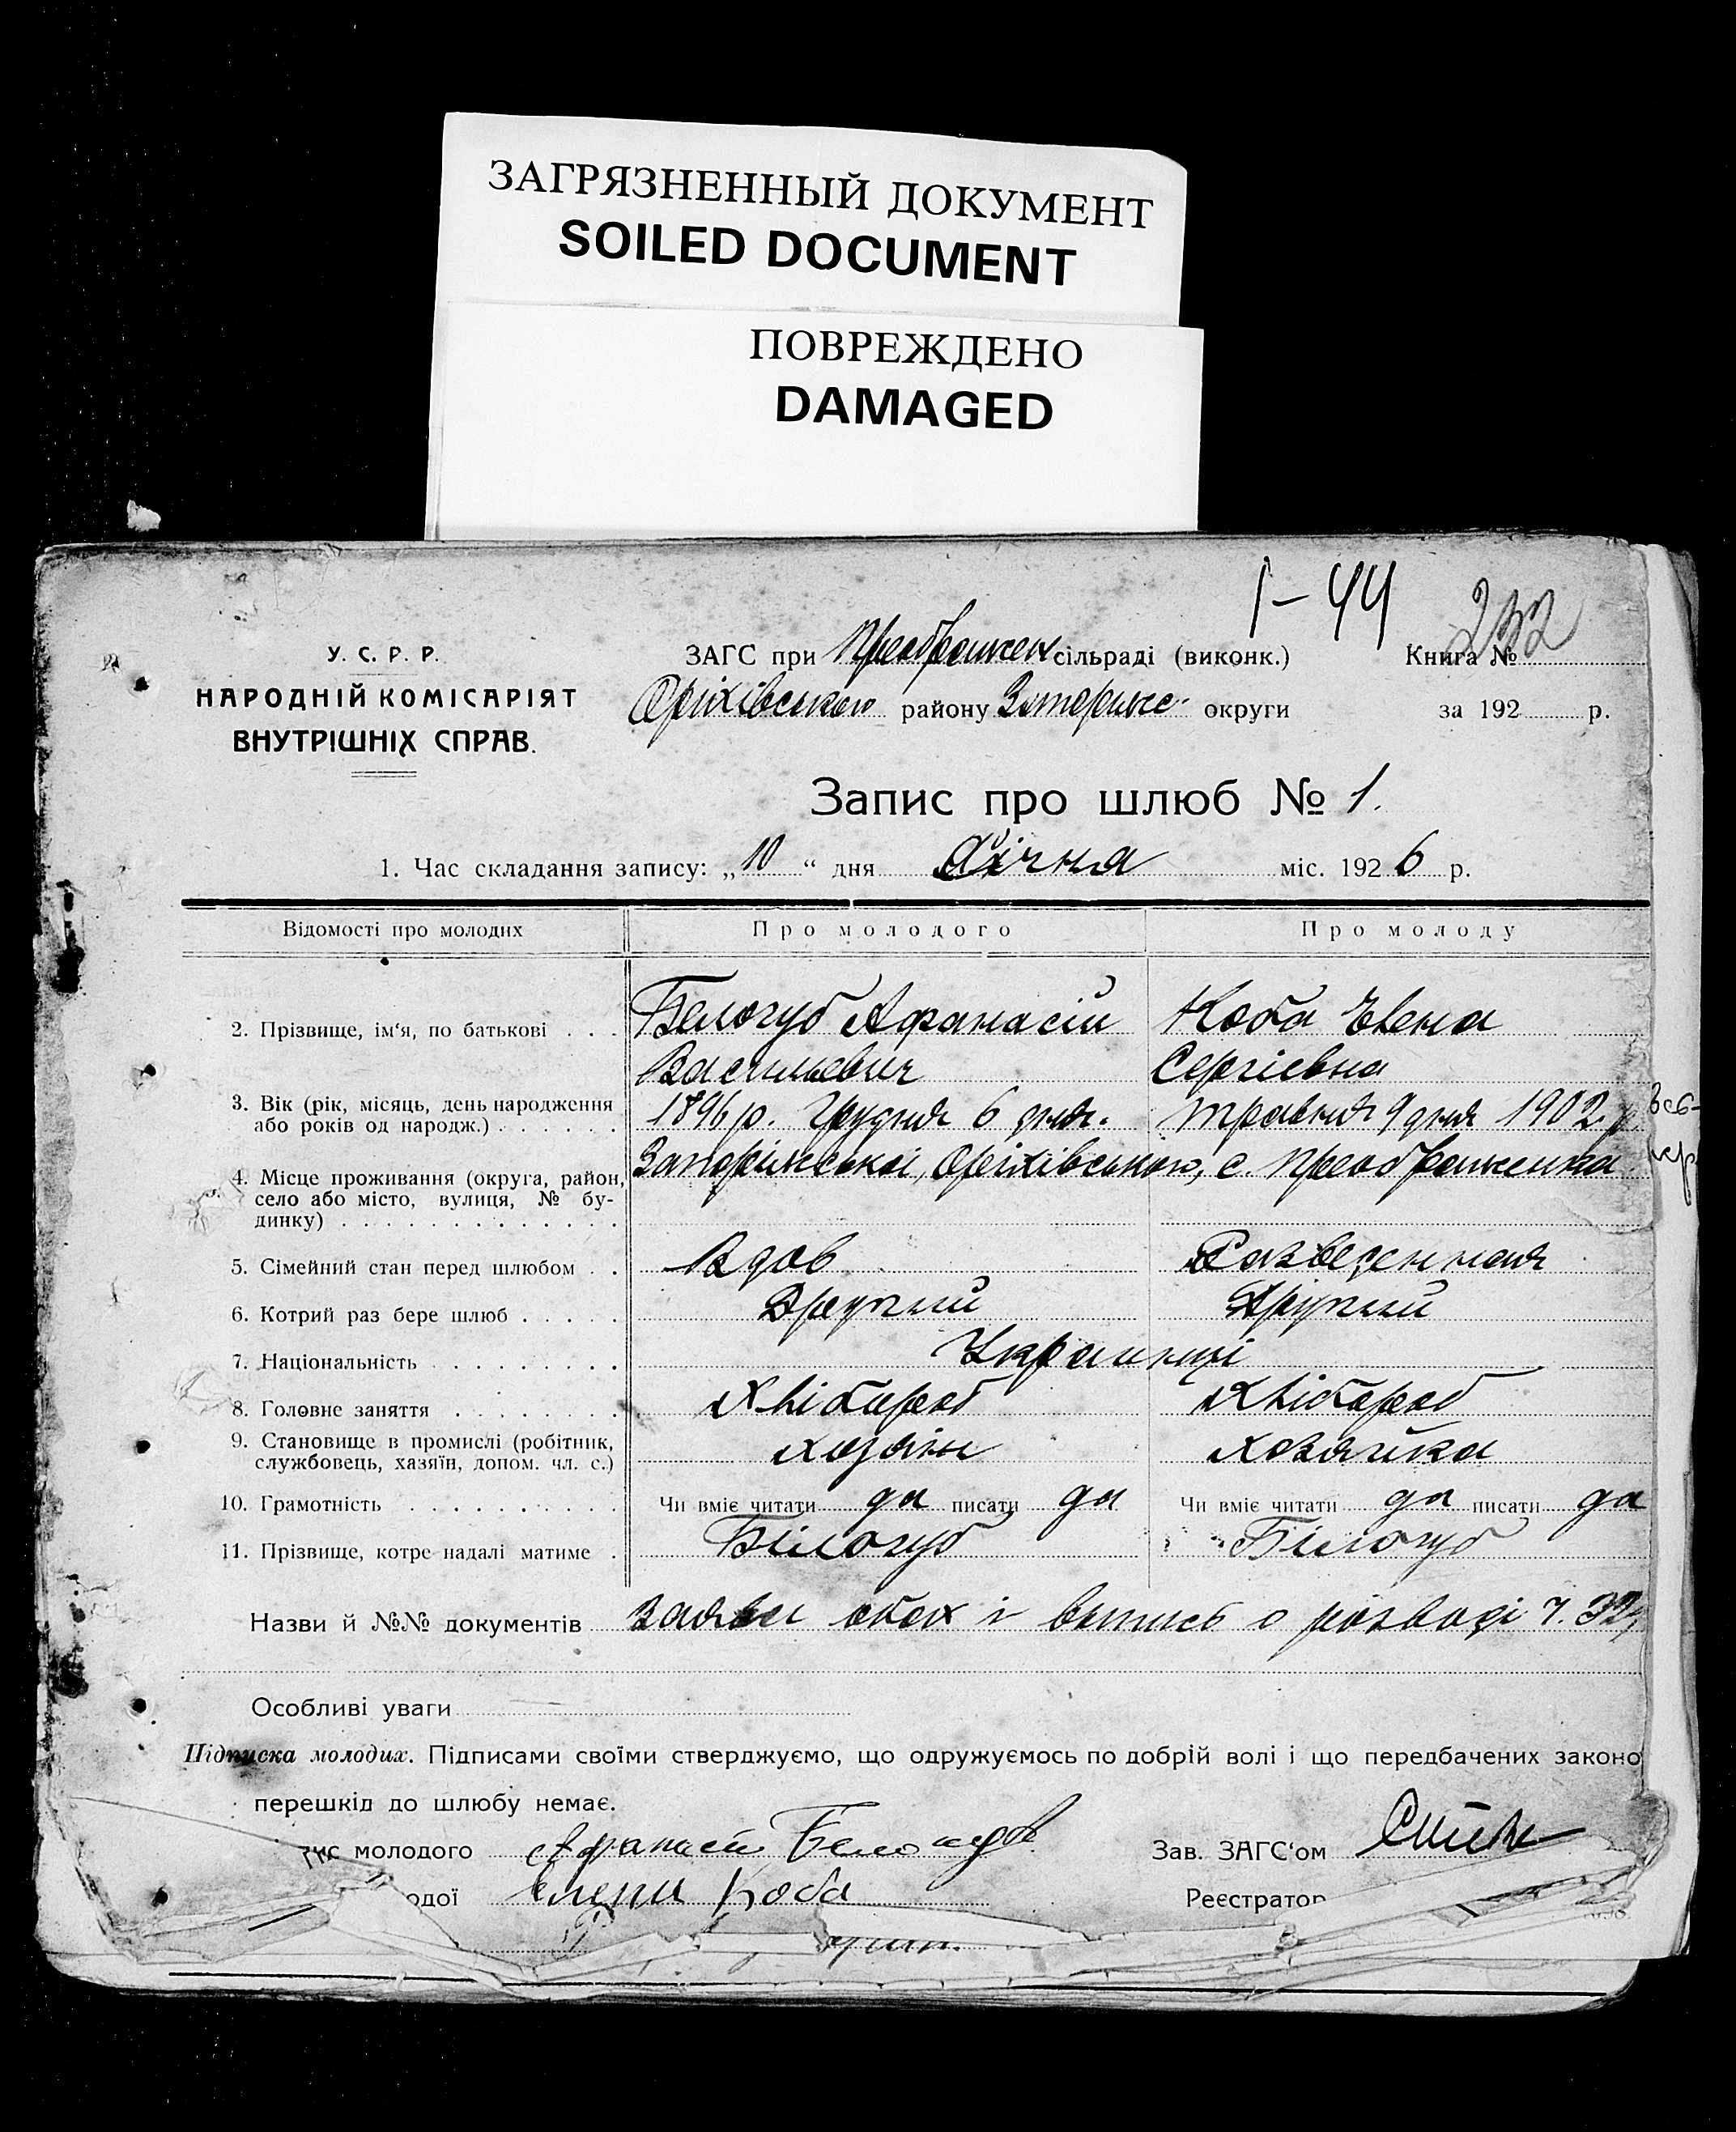 ЗАГРЯЗНЕННЫЙ ДОКУМЕНТ
SOILED DOCUMENT
ПОВРЕЖДЕНО
DAMAGED
1-44
232
У. С. Р. Р.
НАРОДНІЙ КОМІСАРІЯТ
ВНУТРІШНІХ СПРАВ.
ЗАГС при Преображен сільраді (виконк.)
Оріхівського району Запоріжс. округи
Книга №
за 192 р.
Запис про шлюб № 1.
1. Час складання запису: „10“ дня Січня міс. 1926 р.
Відомості про молодих Про молодого Про молоду
2. Прізвище, ім‘я, по батькові . . . Белогуб Афанасій Коба Елена
Васильевич Сергієвна
3. Вік (рік, місяць, день народження або років од народж.) . . . . . . 1896 р. Грудня 6 дня. травня 9 дня 1902 р.
4. Місце проживання (округа, район, село або місто, вулиця, № будинку) . . . . . . . . . . . . . Запоріжської, Оріхівського, с. Преображенка.
5. Сімейний стан перед шлюбом . . Вдов Разведенная
6. Котрий раз бере шлюб . . . . . Другий Другий
7. Національність . . . . . . . . . Українці
8. Головне заняття . . . . . . . . Хлібороб Хлібороб
9. Становище в промислі (робітник, службовець, хазяїн, допом. чл. с.) хозяін хозяйка
10. Грамотність . . . . . . . . . . Чи вміє читати да писати да Чи вміє читати да писати да
11. Прізвище, котре надалі матиме . Білогуб Білогуб
Назви й №№ документів заяви обох і випись о розводі ч. 32
Особливі уваги
Підписка молодих. Підписами своїми стверджуємо, що одружуємось по добрій волі і що передбачених законо
перешкід до шлюбу немає.
молодого Афанасій Белогуб Зав. ЗАГС‘ом
одої Елена Коба Реєстратор